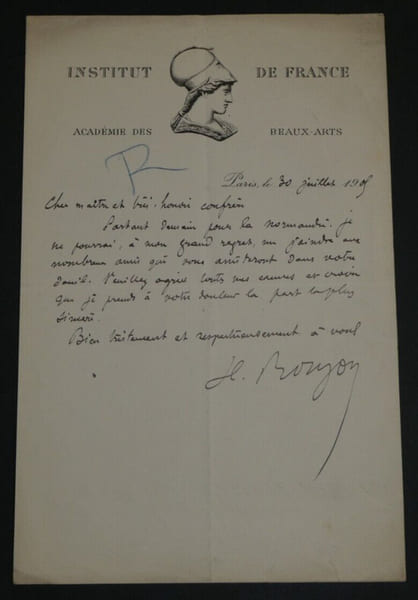 INSTITUT DE FRANCE
ACADÉMIE DES BEAUX-ARTS
R
Paris, le 30 juillet 190
Cher maître et très honoré confrère
Partant demain pour la normandie, je
ne pourrai, à mon grand regret, me joindre aux
nombreux amis qui vous assisteront dans votre
deuil. Veuillez agréer toutes mes excuses et croire
que je prends à votre douleur la part la plus
sincère.
Bien tristement et respectueusement à vous
H. Roujon